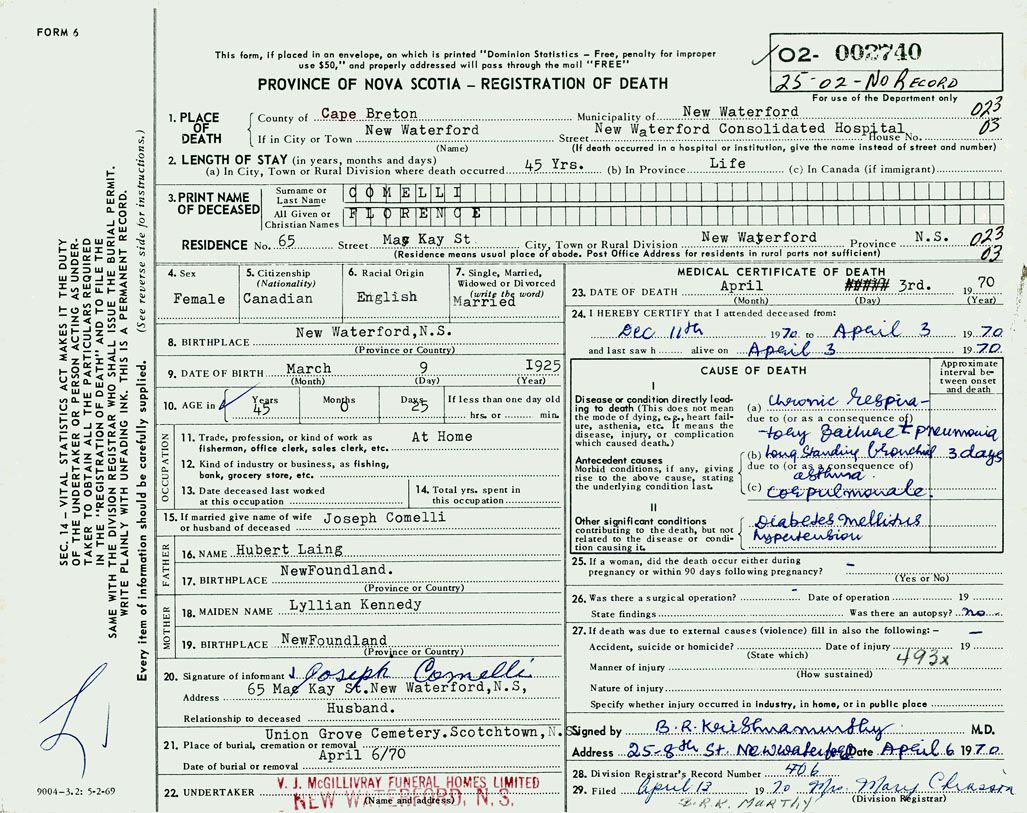 FORM 6
This form, if placed in an envelope, on which is printed "Dominion Statistics – Free, penalty for improper
use $50," and properly addressed will pass through the mail "FREE"
PROVINCE OF NOVA SCOTIA – REGISTRATION OF DEATH
02- 002740
25-02-No Record
For use of the Department only
1. PLACE OF DEATH
County of Cape Breton Municipality of New Waterford 023
If in City or Town New Waterford Street New Waterford Consolidated Hospital House No. 03
(Name) (If death occurred in a hospital or institution, give the name instead of street and number)
2. LENGTH OF STAY (in years, months and days)
(a) In City, Town or Rural Division where death occurred 45 Yrs. (b) In Province Life (c) In Canada (if immigrant)
3. PRINT NAME OF DECEASED
Surname or Last Name COMELLI
All Given or Christian Names FLORENCE
RESIDENCE No. 65 Street Mac Kay St. City, Town or Rural Division New Waterford Province N.S. 023
(Residence means usual place of abode. Post Office Address for residents in rural parts not sufficient) 03
4. Sex Female
5. Citizenship (Nationality) Canadian
6. Racial Origin English
7. Single, Married, Widowed or Divorced (write the word) Married
8. BIRTHPLACE New Waterford,N.S.
(Province or Country)
9. DATE OF BIRTH March 9 1925
(Month) (Day) (Year)
10. AGE in Years 45 Months 0 Days 25 If less than one day old
hrs. or min.
OCCUPATION
11. Trade, profession, or kind of work as At Home
fisherman, office clerk, sales clerk, etc.
12. Kind of industry or business, as fishing,
bank, grocery store, etc.
13. Date deceased last worked
at this occupation
14. Total yrs. spent in
this occupation
15. If married give name of wife
or husband of deceased Joseph Comelli
FATHER
16. NAME Hubert Laing
17. BIRTHPLACE NewFoundland.
(Province or Country)
MOTHER
18. MAIDEN NAME Lyllian Kennedy
19. BIRTHPLACE NewFoundland
(Province or Country)
20. Signature of informant Joseph Comelli
Address 65 Mac Kay St.New Waterford,N.S,
Husband.
Relationship to deceased
Union Grove Cemetery.Scotchtown,N.S
21. Place of burial, cremation or removal
April 6/70
Date of burial or removal
22. UNDERTAKER V. J. McGILLIVRAY FUNERAL HOMES LIMITED
NEW WATERFORD, N. S.
(Name and address)
MEDICAL CERTIFICATE OF DEATH
23. DATE OF DEATH April 3rd. 1970
(Month) (Day) (Year)
24. I HEREBY CERTIFY that I attended deceased from:
Dec 11th 1970 to April 3 1970
and last saw h alive on April 3 1970
CAUSE OF DEATH
Approximate interval between onset and death
I
Disease or condition directly leading to death (This does not mean the mode of dying, e.g., heart failure, asthenia, etc. It means the disease, injury, or complication which caused death.)
(a) Chronic Respira-
due to (or as a consequence of)
tory Failure + pneumonia
Antecedent causes
Morbid conditions, if any, giving rise to the above cause, stating the underlying condition last.
(b) Long Standing bronchial 3 days
due to (or as a consequence of)
asthma
(c) Cor pulmonale.
II
Other significant conditions
contributing to the death, but not related to the disease or condition causing it.
Diabetes Mellitus
hypertension
25. If a woman, did the death occur either during
pregnancy or within 90 days following pregnancy? –
(Yes or No)
26. Was there a surgical operation? – Date of operation 19
State findings Was there an autopsy? no
27. If death was due to external causes (violence) fill in also the following: – –
Accident, suicide or homicide? Date of injury 19
(State which) 493x
Manner of injury
(How sustained)
Nature of injury
Specify whether injury occurred in industry, in home, or in public place
Signed by B.R. Krishnamurthy M.D.
Address 25-8th St New Waterford Date April 6 1970
28. Division Registrar's Record Number 406
29. Filed April 13 1970 Mrs. Mary Chiasson
B.R.K MURTHY (Division Registrar)
SEC. 14 – VITAL STATISTICS ACT MAKES IT THE DUTY
OF THE UNDERTAKER OR PERSON ACTING AS UNDER-
TAKER TO OBTAIN ALL THE PARTICULARS REQUIRED
IN THE "REGISTRATION OF DEATH" AND TO FILE THE
SAME WITH THE DIVISION REGISTRAR WHO SHALL ISSUE THE BURIAL PERMIT.
WRITE PLAINLY WITH UNFADING INK. THIS IS A PERMANENT RECORD.
Every item of information should be carefully supplied. (See reverse side for instructions.)
9004–3.2: 5-2-69